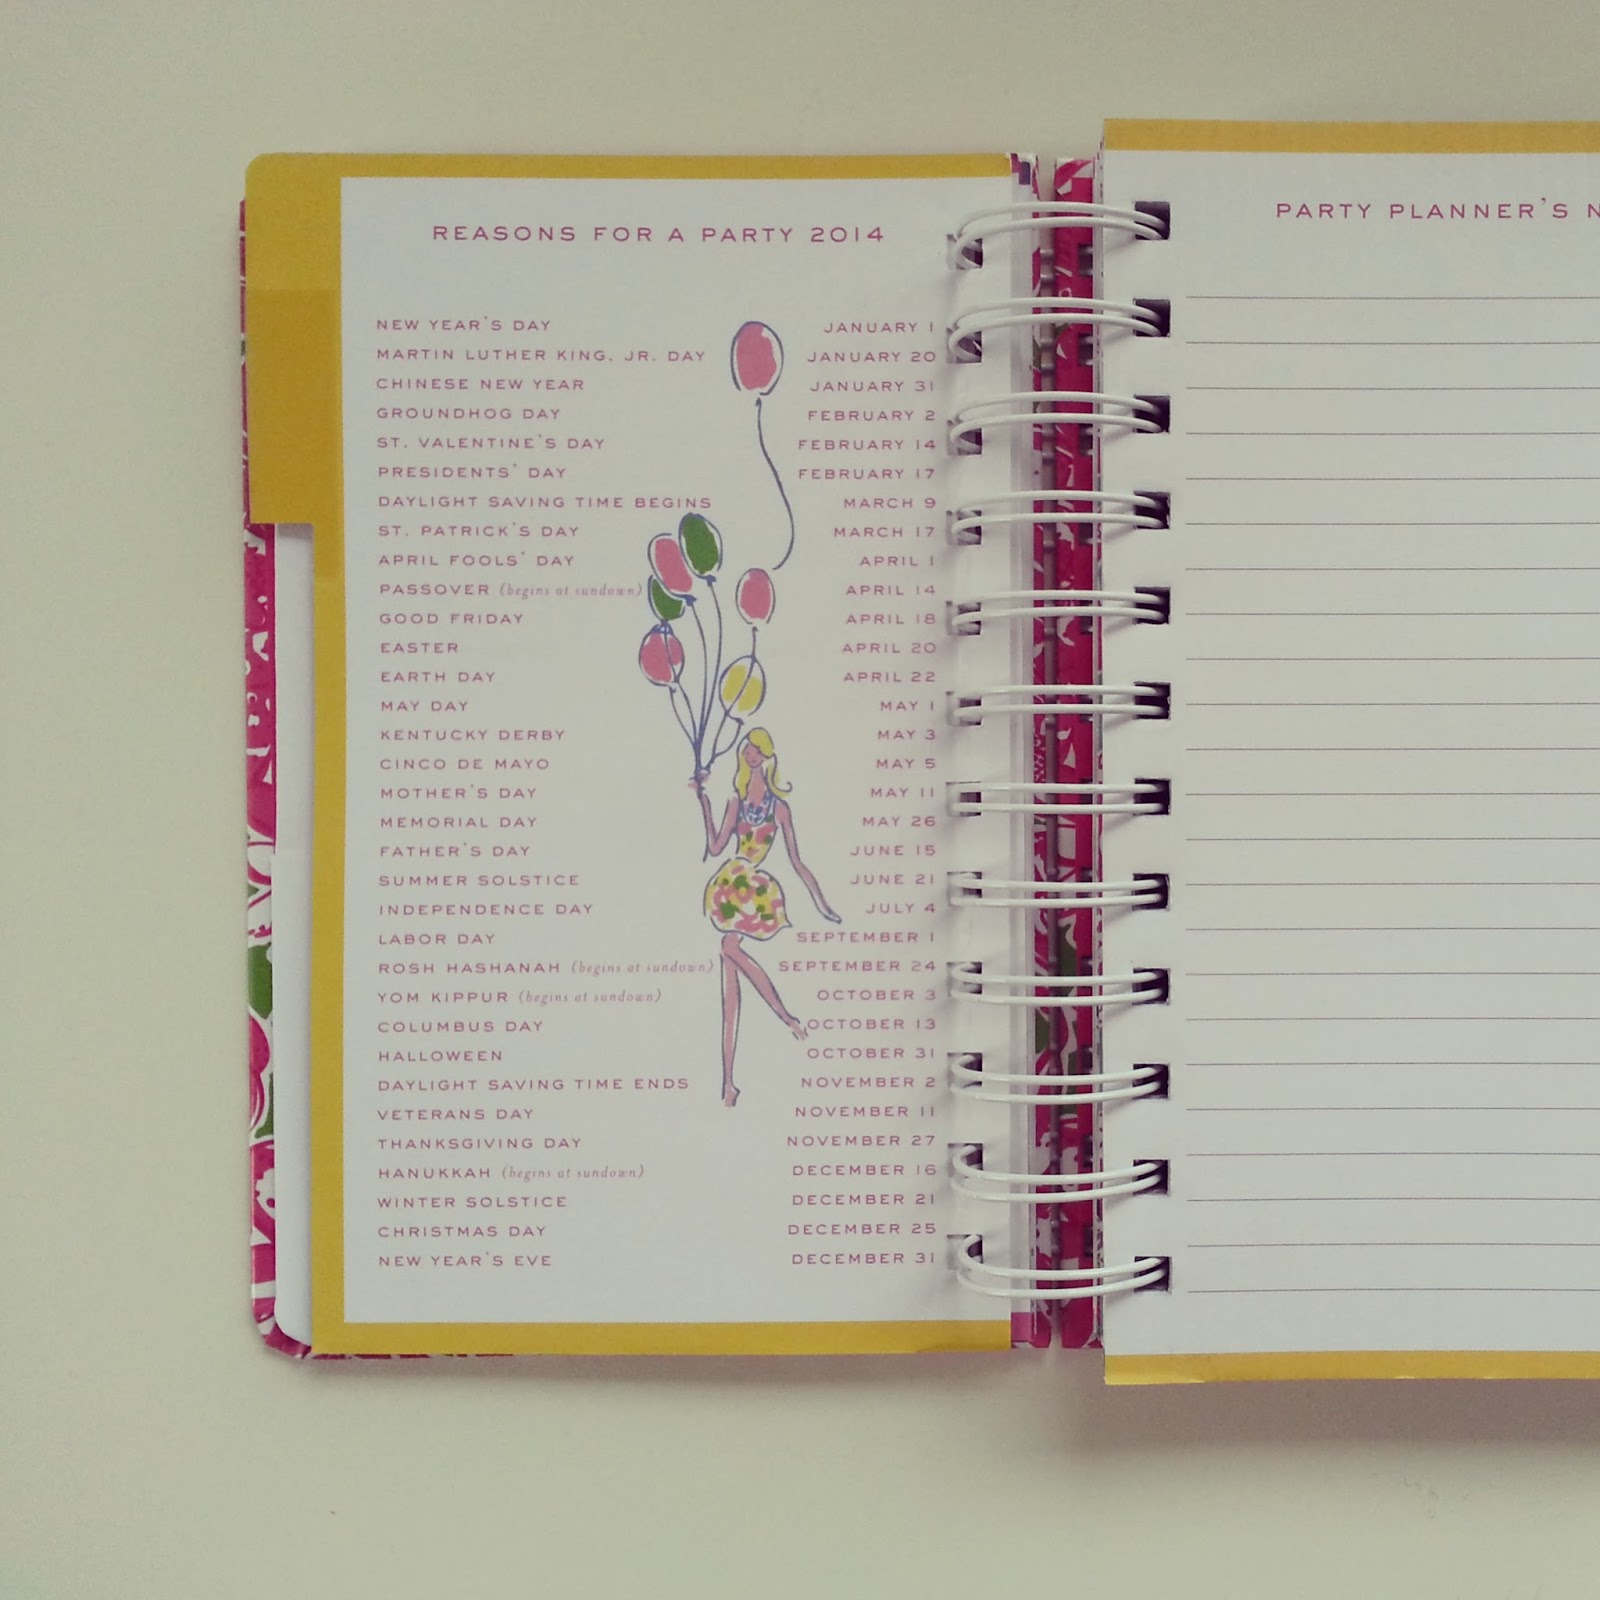 REASONS FOR A PARTY 2014
NEW YEAR'S DAY JANUARY 1
MARTIN LUTHER KING, JR. DAY JANUARY 20
CHINESE NEW YEAR JANUARY 31
GROUNDHOG DAY FEBRUARY 2
ST. VALENTINE'S DAY FEBRUARY 14
PRESIDENTS' DAY FEBRUARY 17
DAYLIGHT SAVING TIME BEGINS MARCH 9
ST. PATRICK'S DAY MARCH 17
APRIL FOOLS' DAY APRIL 1
PASSOVER (begins at sundown) APRIL 14
GOOD FRIDAY APRIL 18
EASTER APRIL 20
EARTH DAY APRIL 22
MAY DAY MAY 1
KENTUCKY DERBY MAY 3
CINCO DE MAYO MAY 5
MOTHER'S DAY MAY 11
MEMORIAL DAY MAY 26
FATHER'S DAY JUNE 15
SUMMER SOLSTICE JUNE 21
INDEPENDENCE DAY JULY 4
LABOR DAY SEPTEMBER 1
ROSH HASHANAH (begins at sundown) SEPTEMBER 24
YOM KIPPUR (begins at sundown) OCTOBER 3
COLUMBUS DAY OCTOBER 13
HALLOWEEN OCTOBER 31
DAYLIGHT SAVING TIME ENDS NOVEMBER 2
VETERANS DAY NOVEMBER 11
THANKSGIVING DAY NOVEMBER 27
HANUKKAH (begins at sundown) DECEMBER 16
WINTER SOLSTICE DECEMBER 21
CHRISTMAS DAY DECEMBER 25
NEW YEAR'S EVE DECEMBER 31
PARTY PLANNER'S N